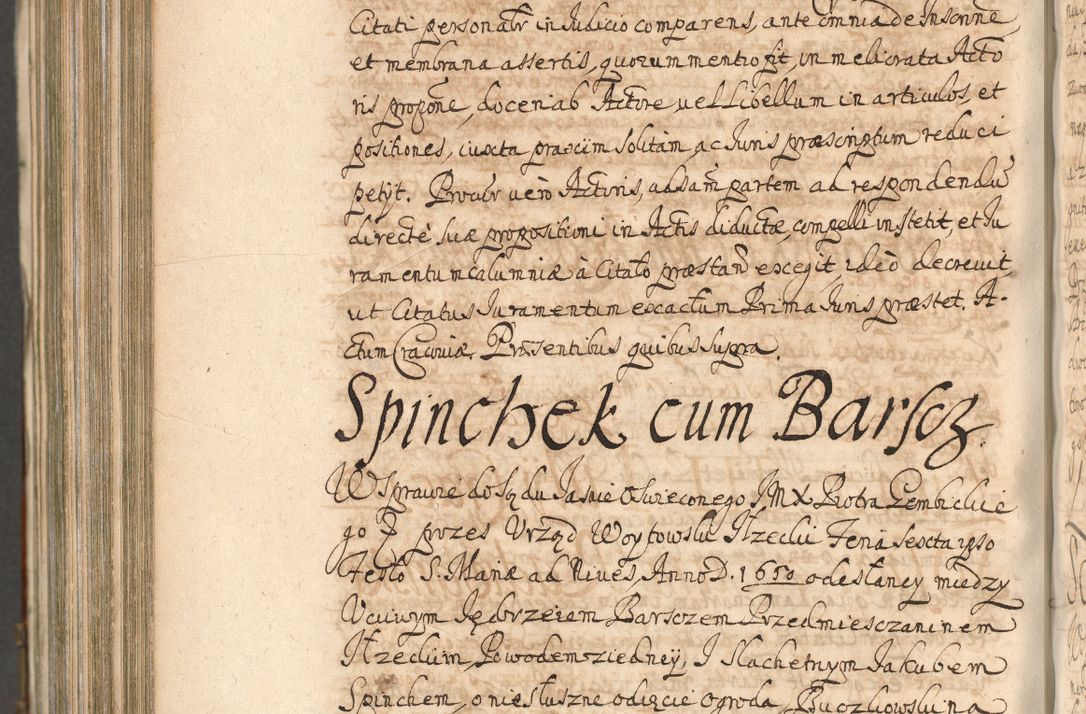 Citati personalr in Judicio comparens, ante omnia de Inscrine
et membrana assertis, quorum mentio fit, in meliorata Acto
ris propone, doceri ab Actore, vel Libellum in articulos, et
positiones, iuxta praxim solitam, ac Juris præscriptum reduci
petÿt. Procur vero Actoris, adsam partem ad respondendu
directè suæ propositioni in Actis diductæ, compelli institit, et Ju
ramentum calumniæ à Citato præstan excepit, ideo decrevit,
ut Citatus Juramentum exactum Prima Juris præstet. A-
ctum Cracoviæ, Præsentibus quibus supra.
Spinchek cum Barscz.
W Sprawie do Sądu Jasnie Oswieconego JMX Piotra Gembickie
go prozes Vrząd Woytowski Iłzecki Feria sexta ipso
Festo S. Mariæ ad Niues, Anno D. 1650 odesłaney między
Vcciwym Jędrzeiem Barsczem Przedmiesczaninem
Iłzeckim, Powodem z iedneÿ, I Slachetnym Jakubem
Spinchem, o niesłuszne odięcie ogroda,